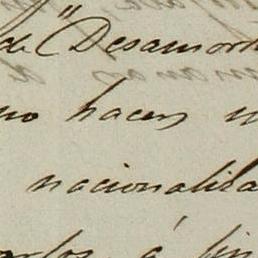 de "Desamort
no hacen
nacionaliza
á fin